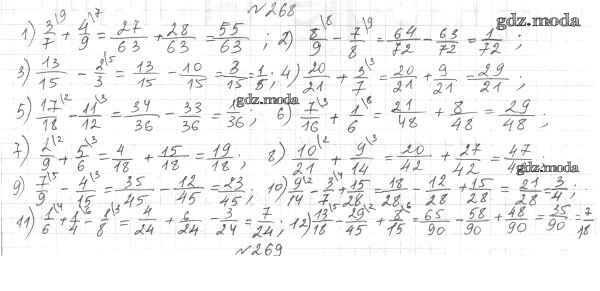 №268
1) 3/7 \9 + 4/9 \7 = 27/63 + 28/63 = 55/63 ; 2) 8/9 \8 − 7/8 \9 = 64/72 − 63/72 = 1/72 ;
3) 13/15 − 2/3 \5 = 13/15 − 10/15 = 3/15 = 1/5 ; 4) 20/21 + 3/7 \3 = 20/21 + 9/21 = 29/21 ;
5) 17/18 \2 − 11/12 \3 = 34/36 − 33/36 = 1/36 ; 6) 7/16 \3 + 1/6 \8 = 21/48 + 8/48 = 29/48 ;
7) 2/9 \2 + 5/6 \3 = 4/18 + 15/18 = 19/18 ; 8) 10/21 \2 + 9/14 \3 = 20/42 + 27/42 = 47/
9) 7/9 \5 − 4/15 \3 = 35/45 − 12/45 = 23/45 ; 10) 9/14 \2 − 3/7 \4 + 15/28 = 18/28 − 12/28 + 15/28 = 21/28 = 3/4 ;
11) 1/6 \4 + 1/4 \6 − 1/8 \3 = 4/24 + 6/24 − 3/24 = 7/24 ; 12) 13/18 \5 − 29/45 \2 + 8/15 \6 = 65/90 − 58/90 + 48/90 = 35/90 = 7/18
№269
gdz.moda
gdz.moda
gdz.moda